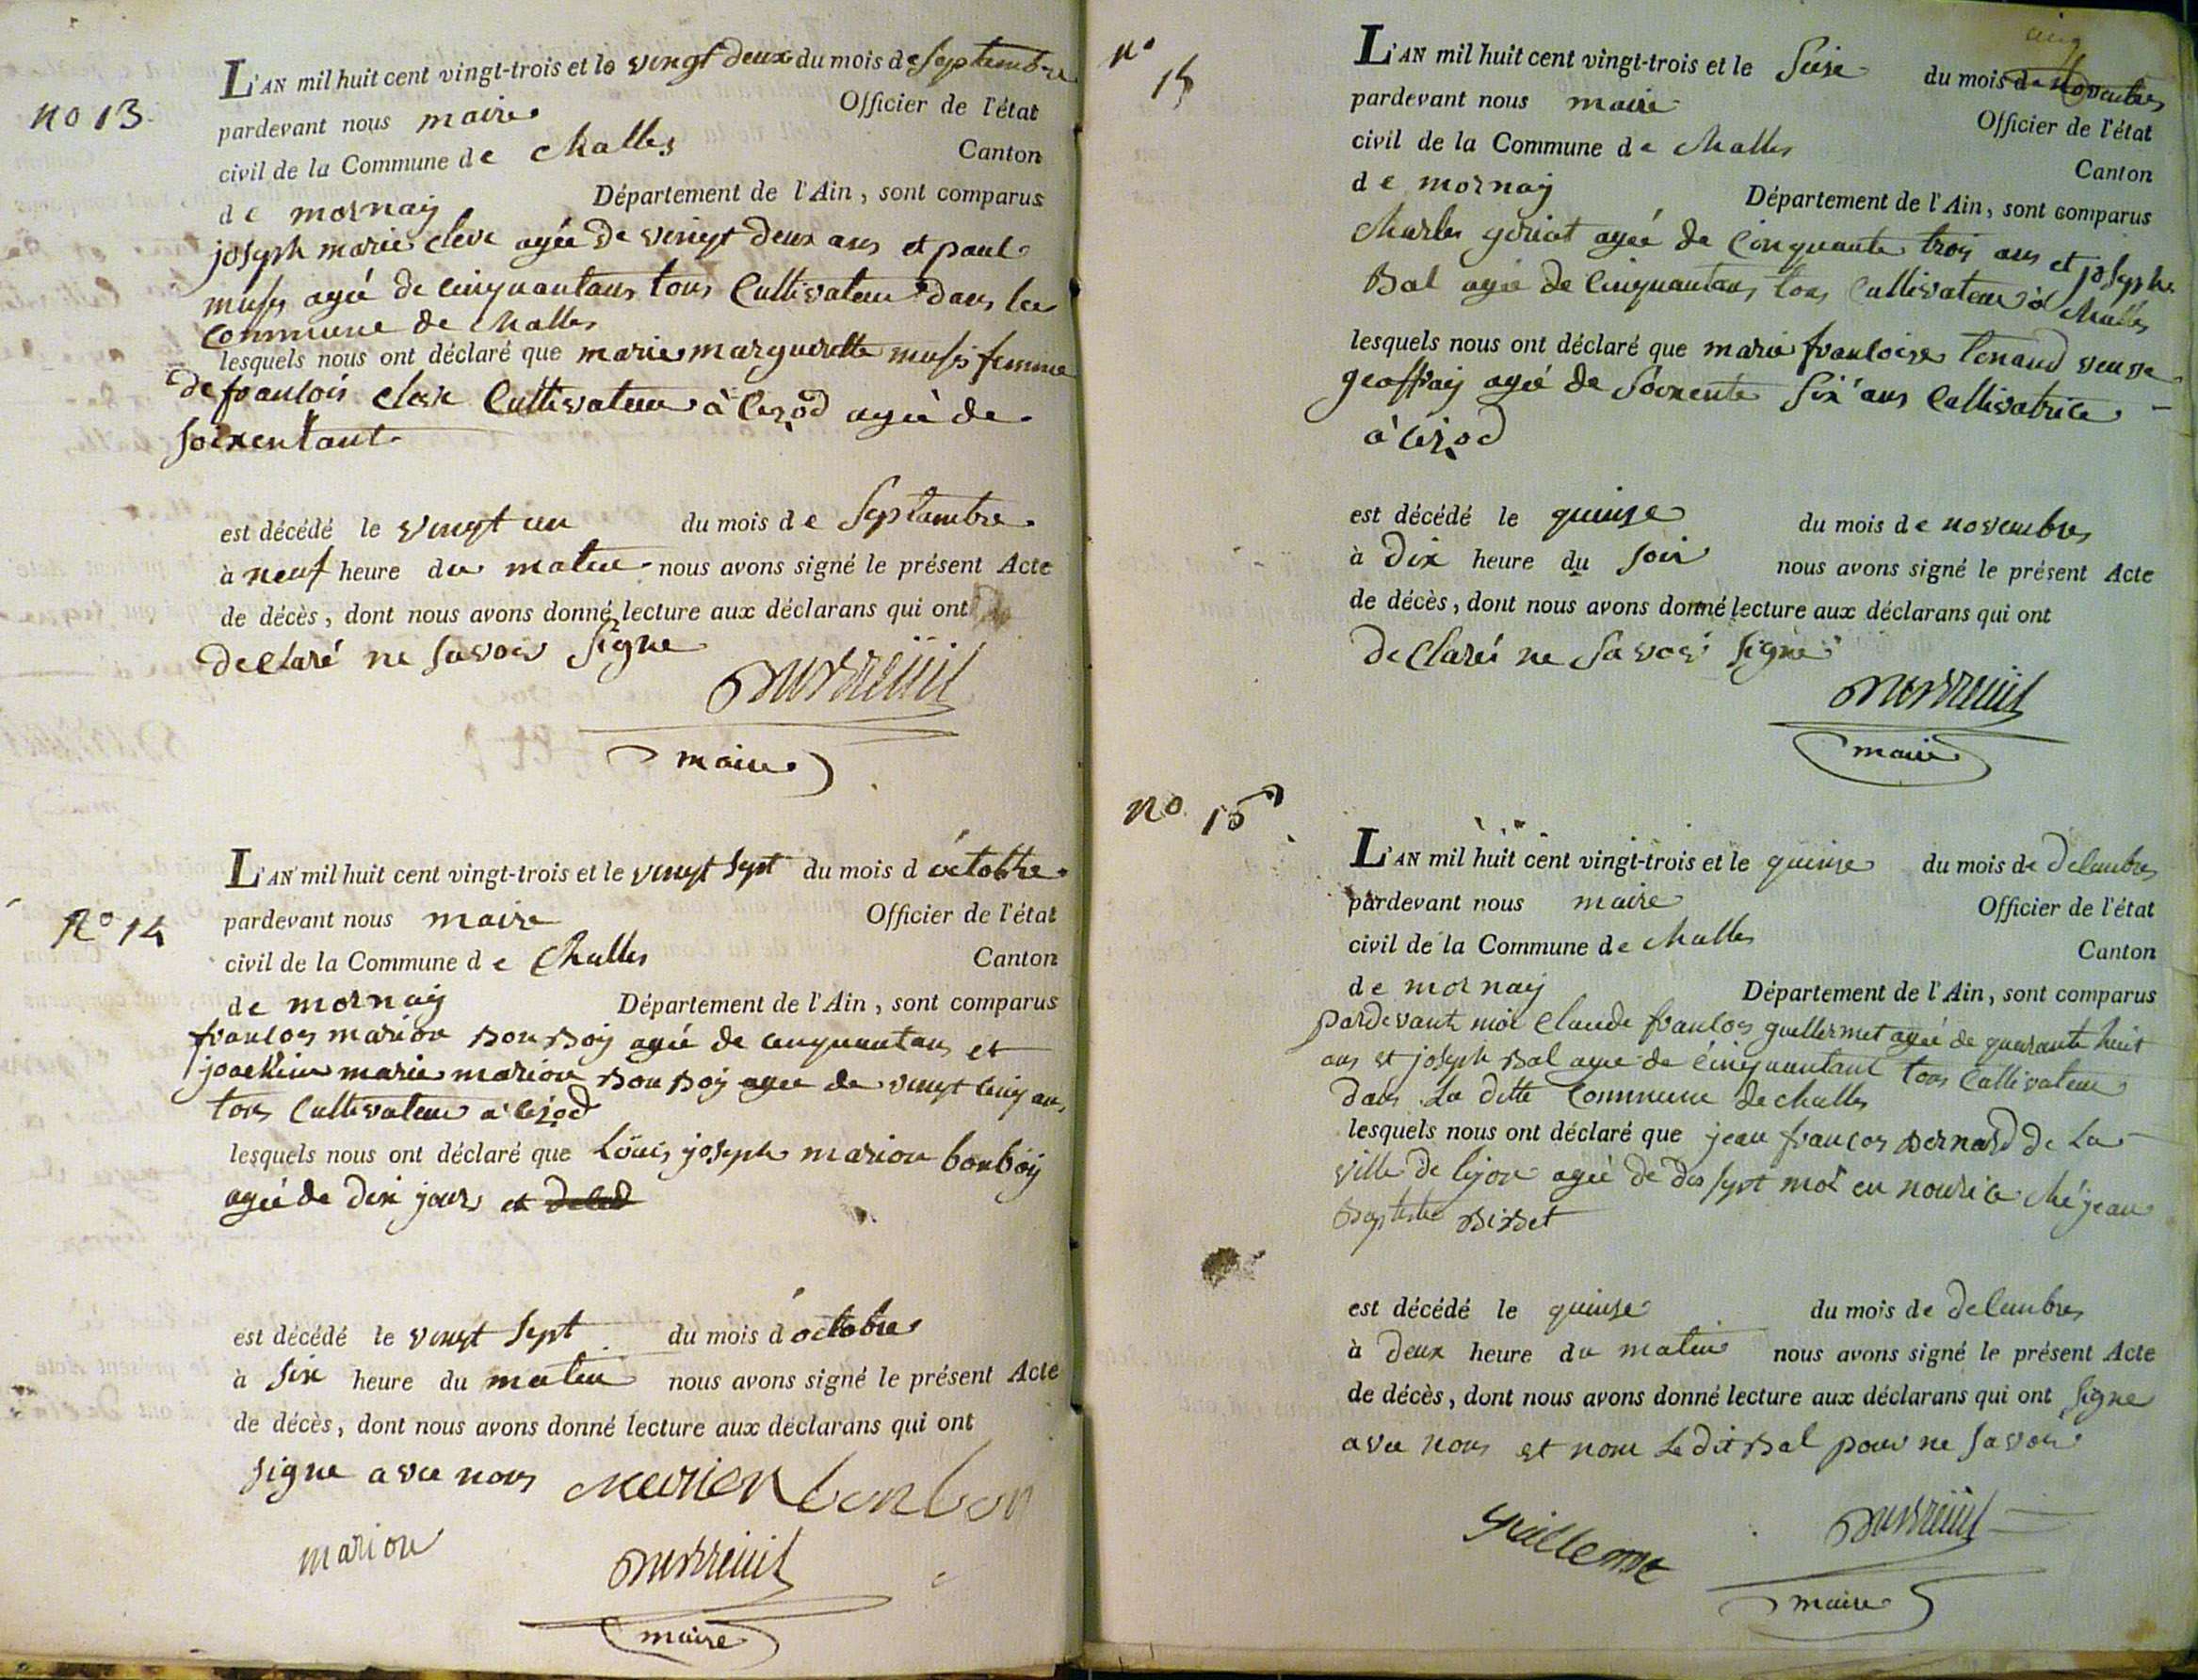 no 13.
L'AN mil huit cent vingt-trois et le vingt deux du mois de septembre
pardevant nous maire Officier de l'état
civil de la Commune de challes Canton
de mornay Département de l'Ain, sont comparus
joseph marie cleve agée de vingt deux ans et paul
agée de cinquantans tous Cultivateur dans la
Commune de challes
lesquels nous ont déclaré que marie marguerette femme
de francois Cultivateur à Cezod agée de
soixentant
est décédé le vingt un du mois de Septambre
à neuf heure du matin nous avons signé le présent Acte
de décès, dont nous avons donné lecture aux déclarans qui ont
declaré ne savoir signe
Dubreuil
maire
No 14
L'AN mil huit cent vingt-trois et le vingt sept du mois d octobre
pardevant nous maire Officier de l'état
civil de la Commune de Challes Canton
de mornay Département de l'Ain, sont comparus
francois marion Bonboy agée de cinquantans et
joachim marie marion Bonboy agee de vingt cinq ans
tous Cultivateur a Cezod
lesquels nous ont déclaré que Louis joseph marion bonboy
agée de dix jours et
est décédé le vingt sept du mois d octobre
à six heure du matin nous avons signé le présent Acte
de décès, dont nous avons donné lecture aux déclarans qui ont
signe avec nous marion bonbon
marion Dubreuil
maire
n° 15
L'AN mil huit cent vingt-trois et le seise du mois de novembre
pardevant nous maire Officier de l'état
civil de la Commune de challes Canton
de mornay Département de l'Ain, sont comparus
Charles agée de Cinquante trois ans et joseph
Bal agée de Cinquantans tous Cultivateur à challes
lesquels nous ont déclaré que marie francoise tenand veuve
geoffray agée de soixente six ans Cultivatrice
à Cezod
est décédé le quinse du mois de novembre
à dix heure du soir nous avons signé le présent Acte
de décès, dont nous avons donné lecture aux déclarans qui ont
declaré ne savoir signe
Dubreuil
maire
no 16
L'AN mil huit cent vingt-trois et le quinse du mois de decembre
pardevant nous maire Officier de l'état
civil de la Commune de challes Canton
de mornay Département de l'Ain, sont comparus
pardevant moi Claude francois guillermet agée de quarante huit
ans et joseph Bal agee de cinquantant tous Cultivateur
dans La ditte Commune de challes
lesquels nous ont déclaré que jean francois Bernard de La
ville de lyon agée de dis sept moi en nourice ché jean
Baptiste Bibet
est décédé le quinse du mois de decembre
à deux heure du matin nous avons signé le présent Acte
de décès, dont nous avons donné lecture aux déclarans qui ont signe
avec nous et nom Ledit Bal pour ne savoir
Dubreuil
maire